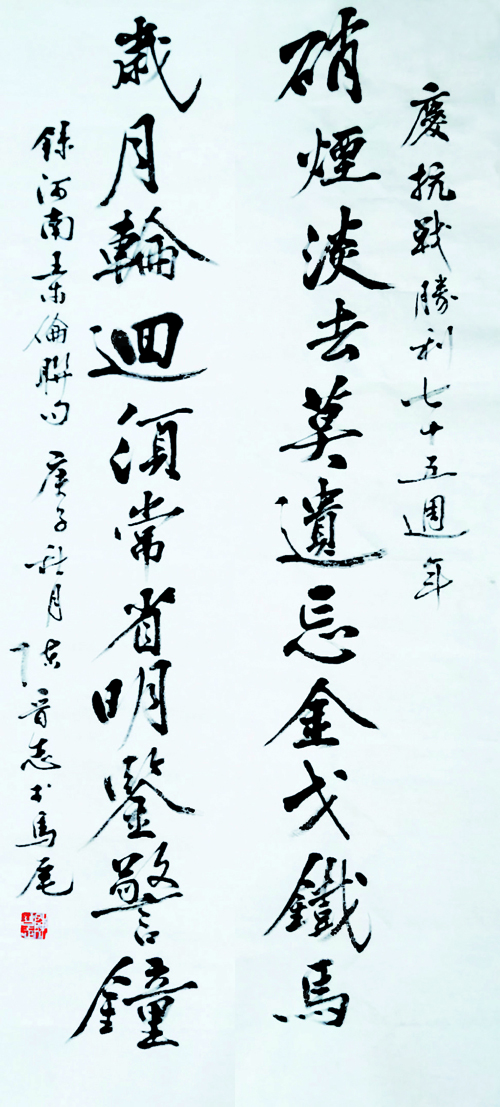 慶抗戰勝利七十五週年
硝煙淡去莫遺忘金戈鐵馬
歲月輪迴須常省明鑒警鐘
錄河南倫聯句 庚子秋月志於馬尾